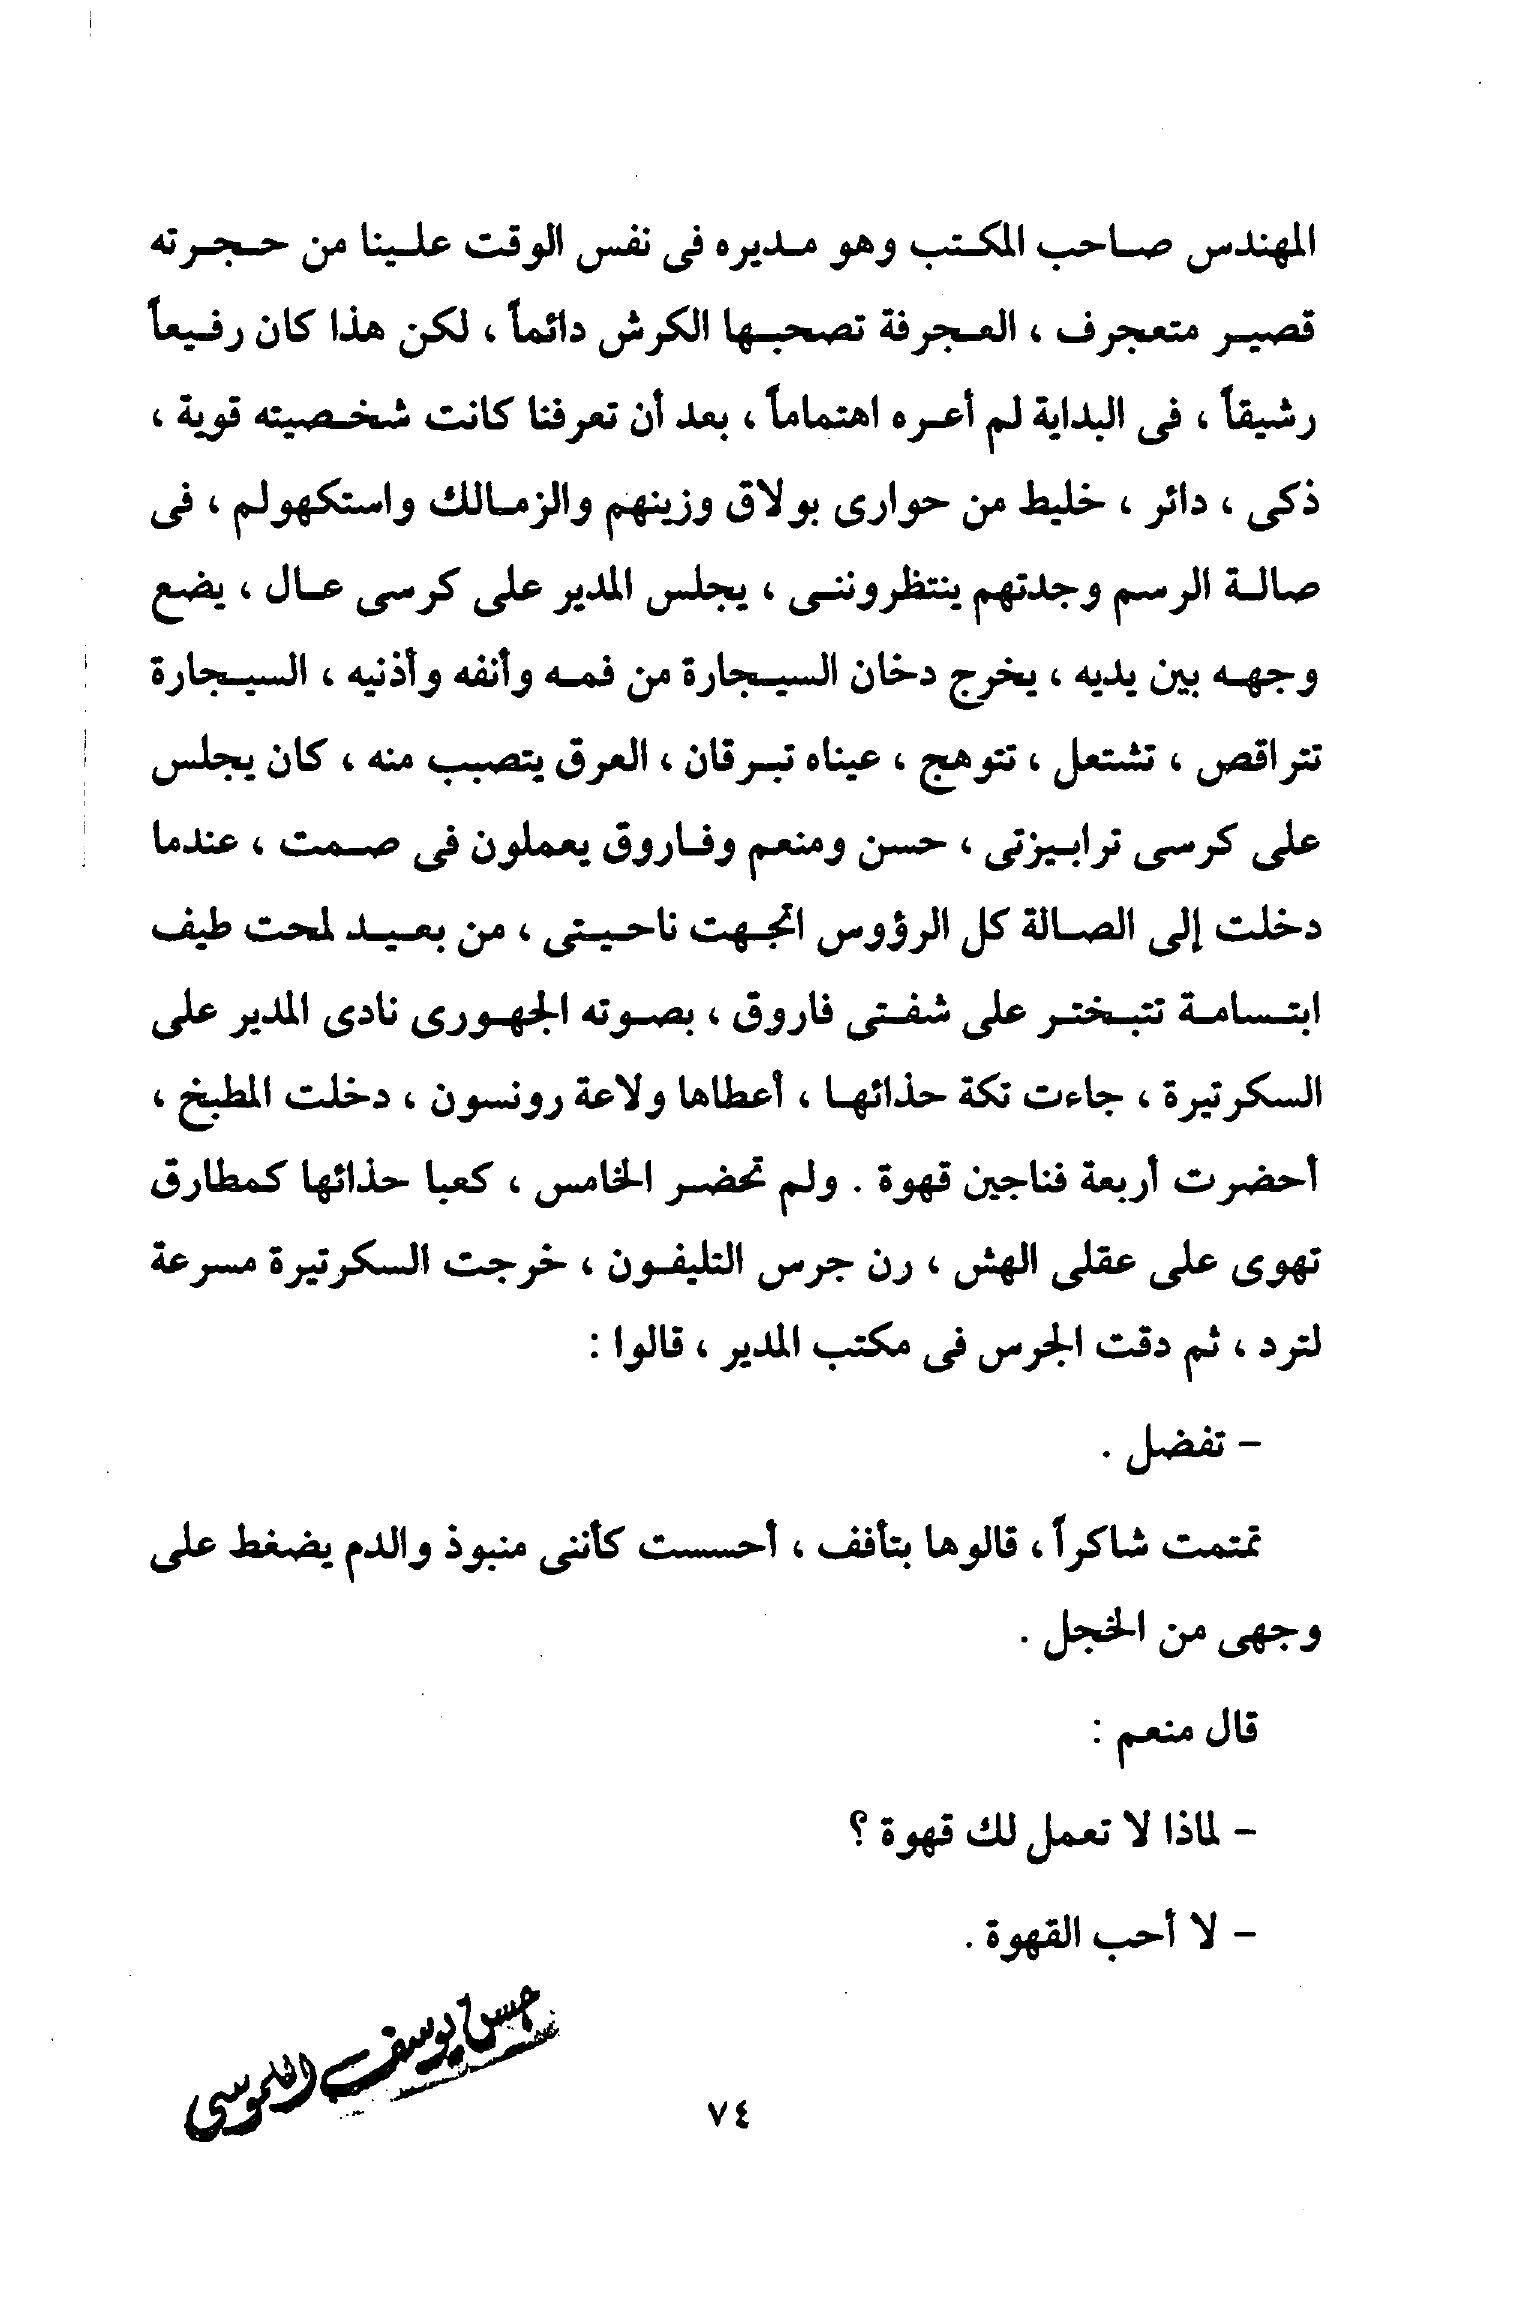 المهندس صاحب المكتب وهو مديره فى نفس الوقت علينا من حجرته
قصير متعجرف ، العجرفة تصحبها الكرش دائماً ، لكن هذا كان رفيعاً
رشيقاً ، فى البداية لم أعره اهتماماً ، بعد أن تعرفنا كانت شخصيته قوية ،
ذكى ، دائر ، خليط من حوارى بولاق وزينهم والزمالك واستكهولم ، فى
صالة الرسم وجدتهم ينتظروننى ، يجلس المدير على كرسى عال ، يضع
وجهه بين يديه ، يخرج دخان السيجارة من فمه وأنفه وأذنيه ، السيجارة
تتراقص ، تشتعل ، تتوهج ، عيناه تبرقان ، العرق يتصبب منه ، كان يجلس
على كرسى ترابيزتى ، حسن ومنعم وفاروق يعملون فى صمت ، عندما
دخلت إلى الصالة كل الرؤوس اتجهت ناحيتى ، من بعيد لمحت طيف
ابتسامة تتبختر على شفتى فاروق ، بصوته الجهورى نادى المدير على
السكرتيرة ، جاءت تكة حذائها ، أعطاها ولاعة رونسون ، دخلت المطبخ ،
أحضرت أربعة فناجين قهوة . ولم تحضر الخامس ، كعبا حذائها كمطارق
تهوى على عقلى الهش ، رن جرس التليفون ، خرجت السكرتيرة مسرعة
لترد ، ثم دقت الجرس فى مكتب المدير ، قالوا :
– تفضل .
تمتمت شاكراً ، قالوها بتأفف ، أحسست كأننى منبوذ والدم يضغط على
وجهى من الخجل .
قال منعم :
– لماذا لا تعمل لك قهوة ؟
– لا أحب القهوة .
حسن يوسف
٧٤